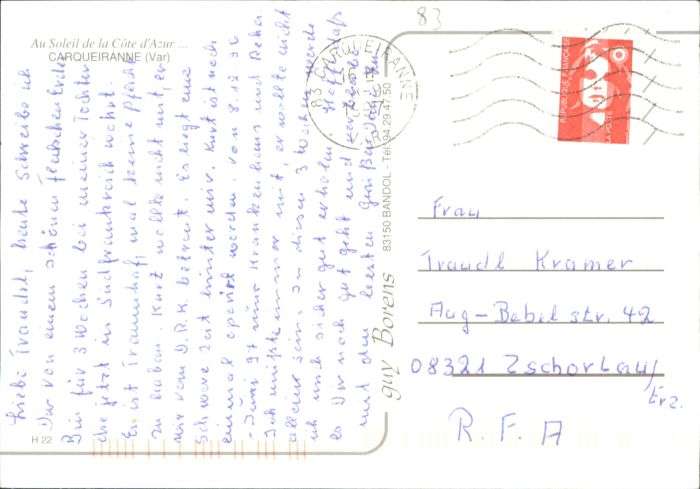 83
Au Soleil de la Côte d'Azur ...
CARQUEIRANNE (Var)
Liebe Traudel, heute Schreibe ich
Dir von einem schönen fleckchen Erde
Bin für 3 Wochen bei meiner Tochter
die jetzt in Südfrankreich wohnt
Es ist Traumhaft, mal keine Pflich
zu haben. Kurt wollte nicht mit, er
wir vom D.R.K. betreut. Es liegt eine
Schwere Zeit hinter mir. Kurt ist noch
einmal operirt worden. vom 8.12
Ich mußte immer mit, er wollte nicht
alleine sein. In diesen 3 Wochen werde
ich mich sicher gut erholen. Hoffe, daß
es Dir noch gut geht und
mit den besten Grüßen
H 22
guy Borens
83150 BANDOL - Tél. 94 29 47 50
83 CARQUEIRANNE
REPUBLIQUE FRANÇAISE
LA POSTE
Frau
Traudl Kramer
Aug-Bebel str. 42
08321 Zschorlau/
Erz.
R.F.A